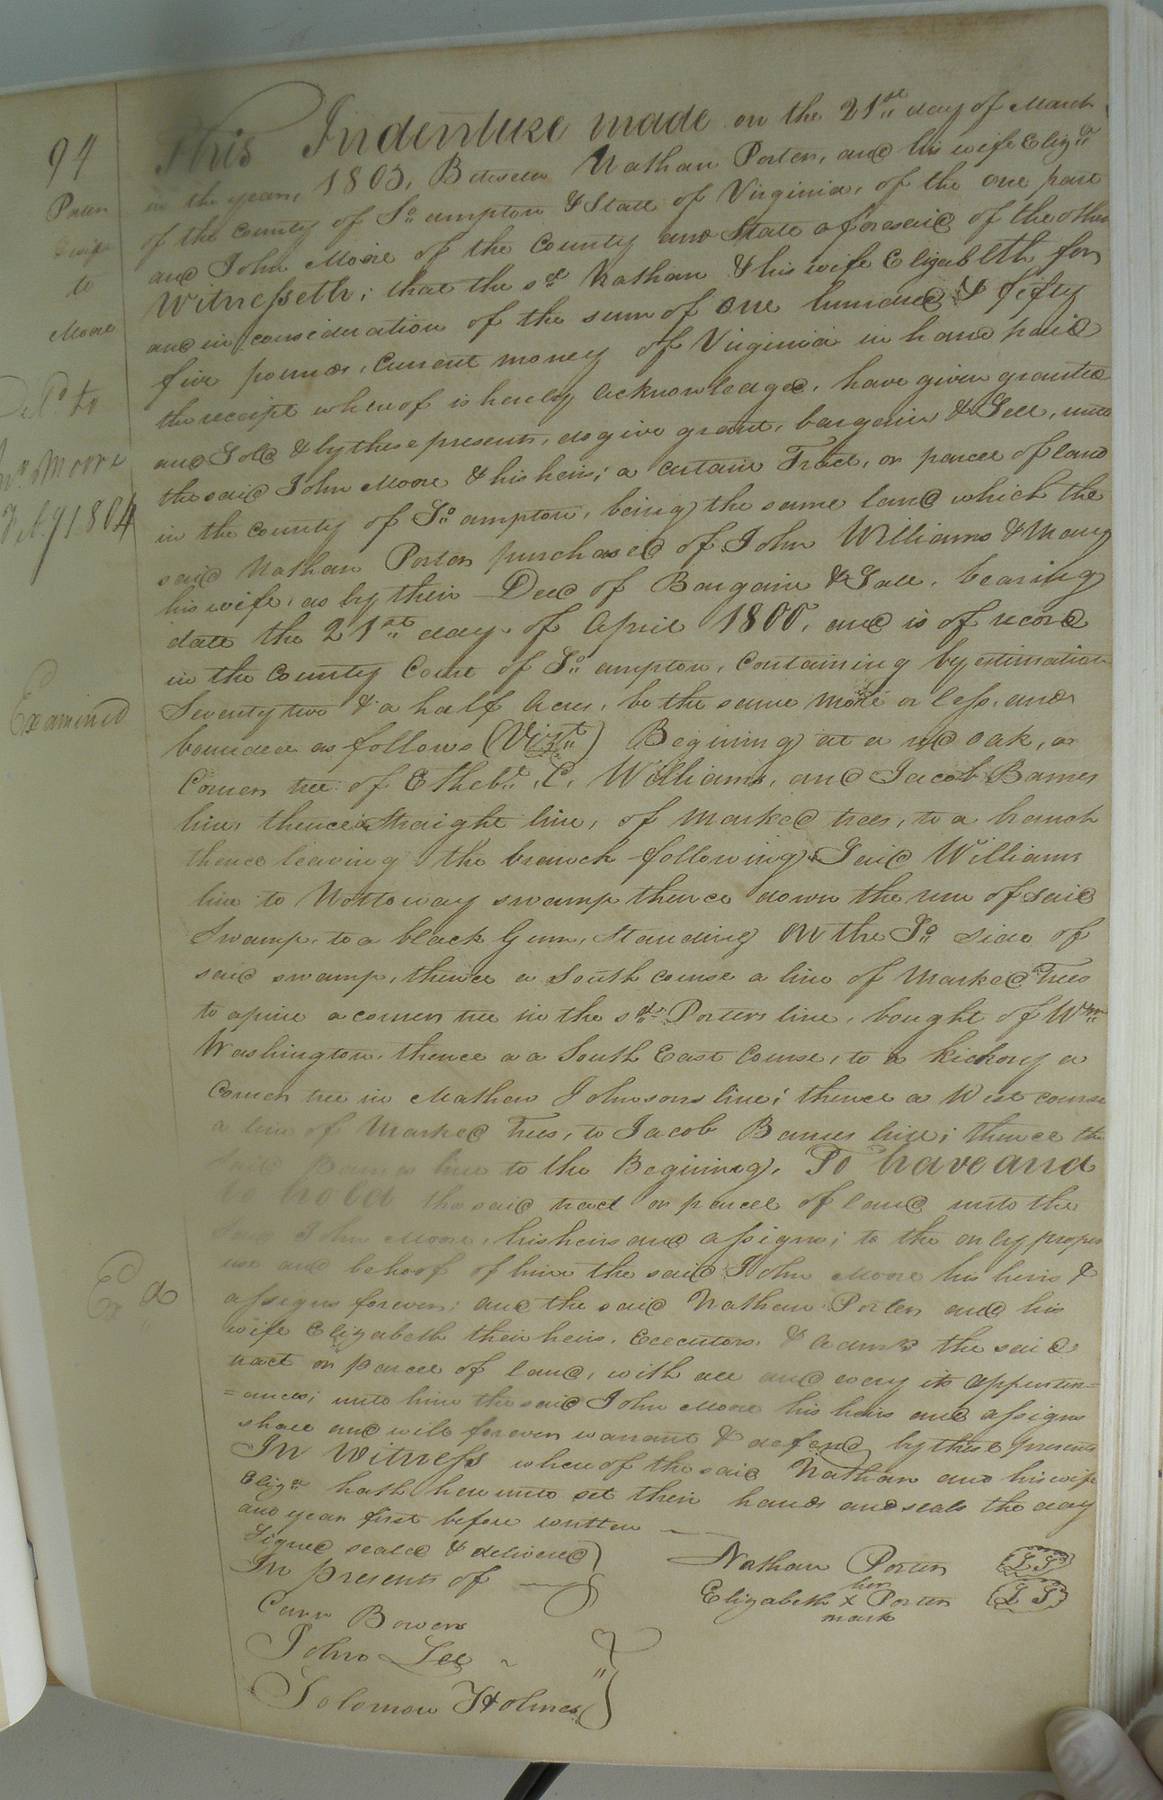 94
Porter
& wife
to
Moore
Del.d to
Jn.o Moore
Feb.y 1804
Examined
Ex d
This Indenture made on the 21st day of March
in the year, 1803, Between Nathan Porter, and his wife Eliz.th
of the County of So.ampton & State of Virginia, of the one part
and John Moore of the County and State aforesaid of the other
Witnesseth; that the sd. Nathan & his wife Elizabeth for
and in consideration of the sum of one hundred & fifty
five pounds, Current money of Virginia in hand paid
the receipt whereof is hereby acknowledged, have given granted
and Sold & by these presents, do give grant, bargain & Sell, unto
the said John Moore & his heirs; a certain Tract, or parcel of land
in the County of So.ampton, being the same land which the
said Nathan Porter purchased of John Williams & Mary
his wife, as by their Deed of Bargain & Sale, bearing
date the 21st day of April 1800, and is of record
in the County Court of So.ampton, Containing by estimation
Seventy two & a half Acres, be the same more or less, and
bounded as follows (Vizt.) Begining at a red oak, a
Corner tree of Ethelb.d C. Williams, and Jacob Barnes
line, thence a straight line, of marked trees, to a branch
thence leaving the branch following Said Williams
line to Nottoway swamp thence down the run of said
Swamp, to a black Gum, Standing on the So. side of
said swamp, thence a South course a line of Marked Trees
to a pine a corner tree in the sd. Porters line, bought of Wm.
Washington, thence a a South East Course, to a hickory a
Corner tree in Mathew Johnsons line; thence a West course
a line of Marked Trees, to Jacob Barnes line; thence the
said Barnes line to the Begining, To have and
to hold the said tract or parcel of land unto the
said John Moore, his heirs and assigns; to the only proper
use and behoof of him the said John Moore his heirs &
assigns forever; and the said Nathan Porter and his
wife Elizabeth their heirs, Executors, & admrs the said
tract or parcel of land, with all and every its appurten=
=ances; unto him the said John Moore his heirs and assigns
shall and will forever warrant & defend by these presents
In Witness whereof the said Nathan and his wife
Eliz.th hath hereunto set their hands and seals the day
and year first before written
Signed sealed & delivered
In presents of
Nathan Porter LS
her
Elizabeth x Porter LS
mark
Carr Bowers
John Lee
Solomon Holmes